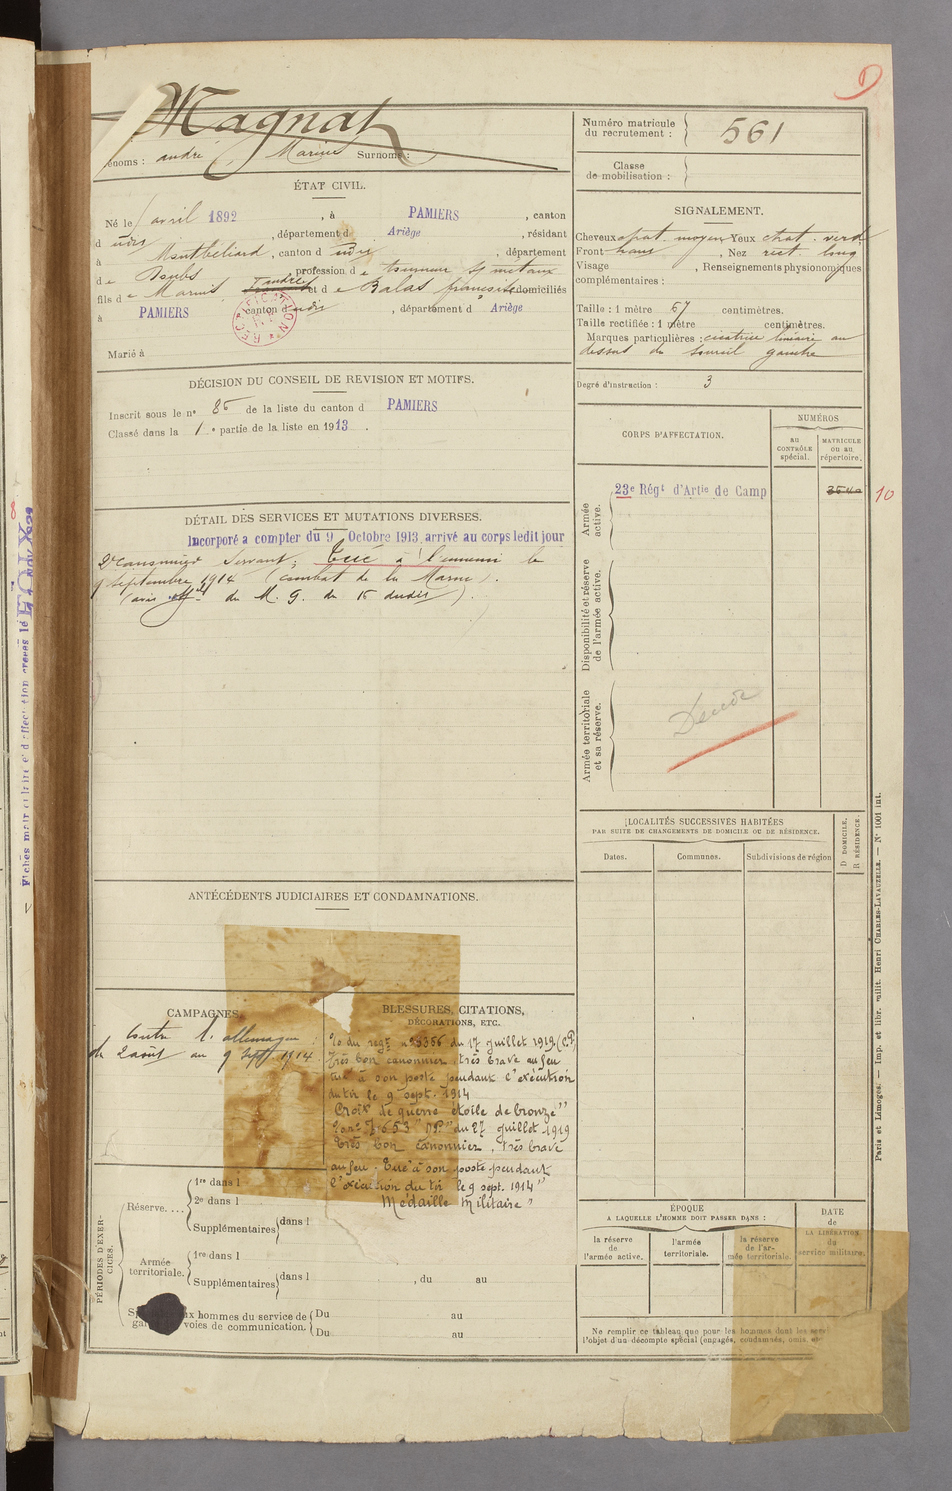 Magnat
Prénoms : andré Marius Surnoms :
ÉTAT CIVIL.
Né le avril 1892, à PAMIERS, canton
d udis, département d Ariège, résidant
à Montbeliard, canton d udis, département
de Doubs profession de tourneur s/ metaux
fils de Marius, et de Balas françoise domiciliés
à PAMIERS canton d udis, département d Ariège
RECTIFICATION
Marié à
DÉCISION DU CONSEIL DE REVISION ET MOTIFS.
Inscrit sous le nº 85 de la liste du canton d PAMIERS
Classé dans la 1e partie de la liste en 1913.
DÉTAIL DES SERVICES ET MUTATIONS DIVERSES.
Incorporé a compter du 9 Octobre 1913, arrivé au corps ledit jour
2e canonnier servant; Tué à l'ennemi le
9 septembre 1914 (combat de la Marne).
(avis off el du M. G. du 15 dudit).
ANTÉCÉDENTS JUDICIAIRES ET CONDAMNATIONS.
CAMPAGNES
Contre l'allemagne :
du 2 août au 9 Sept 1914.
BLESSURES, CITATIONS,
DÉCORATIONS, ETC.
du regt nº 5356 du 17 juillet 1919
Très bon canonnier, très brave au feu
tué à son poste pendant l'exécution
du tir le 9 sept. 1914
Croix de guerre étoile de bronze"
du 27 juillet 1919
Très bon canonnier, très brave
au feu. Tué à son poste pendant
l'exécution du tir le 9 sept. 1914"
Médaille Militaire"
PÉRIODES D'EXERCICES.
Réserve....
1re dans l
2e dans l
Supplémentaires dans l
Armée
territoriale.
1re dans l
Supplémentaires dans l , du au
aux hommes du service de
voies de communication.
Du au
Du au
Numéro matricule
du recrutement : 561
Classe
de mobilisation :
SIGNALEMENT.
Cheveux chat. moyen Yeux chat. verd
Front haus, Nez rect. long
Visage , Renseignements physionomiques
complémentaires :
Taille : 1 mètre 67 centimètres.
Taille rectifiée : 1 mètre centimètres.
Marques particulières : cicatrice linéaire au
dessus du sourcil gauche
Degré d'instruction : 3
CORPS D'AFFECTATION.
NUMÉROS
AU
CONTRÔLE
spécial.
MATRICULE
ou au
répertoire.
Armée
active.
23e Régt d'Artie de Camp
10
Disponibilité et réserve
de l'armée active.
Armée territoriale
et sa réserve.
LOCALITÉS SUCCESSIVES HABITÉES
PAR SUITE DE CHANGEMENTS DE DOMICILE OU DE RÉSIDENCE.
Dates.
Communes.
Subdivisions de région
D DOMICILE,
R RÉSIDENCE.
ÉPOQUE
A LAQUELLE L'HOMME DOIT PASSER DANS :
la réserve
de
l'armée active.
l'armée
territoriale.
la réserve
de l'ar-
mée territoriale.
DATE
de
LA LIBÉRATION
du
service militaire.
Ne remplir ce tableau que pour les hommes dont les ser
l'objet d'un décompte spécial (engagés, condamnés, omis, et
Paris et Limoges. — Imp. et libr. milit. Henri CHARLES-LAVAUZELLE. — Nº 1001 int.